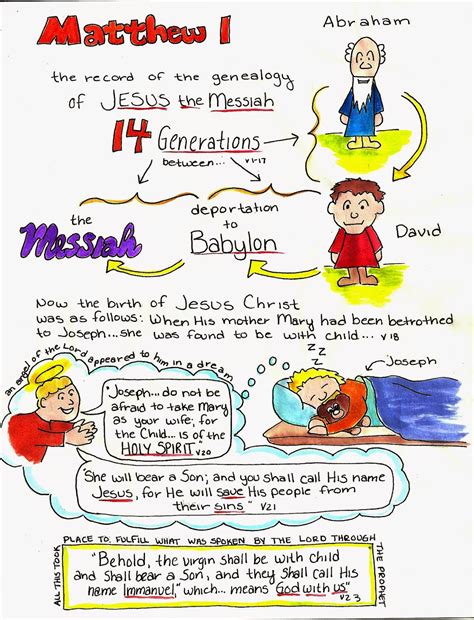 Matthew 1
Abraham
the record of the genealogy
of JESUS the Messiah
14 Generations
between... v1-17
the
Messiah
deportation
to
Babylon
David
Now the birth of Jesus Christ
was as follows: When His mother Mary had been betrothed
to Joseph...she was found to be with child... v18
z z z
Joseph
an angel of the Lord appeared to him in a dream
"Joseph... do not be
afraid to take Mary
as your wife; for
the Child... is of the
HOLY SPIRIT v20
"She will bear a Son; and you shall call His name
Jesus, for He will save His people from
their sins" v21
ALL THIS TOOK
PLACE TO FULFILL WHAT WAS SPOKEN BY THE LORD THROUGH
THE PROPHET
"Behold, the virgin shall be with child
and shall bear a Son, and they shall call His
name Immanuel," which... means God with us"
v23